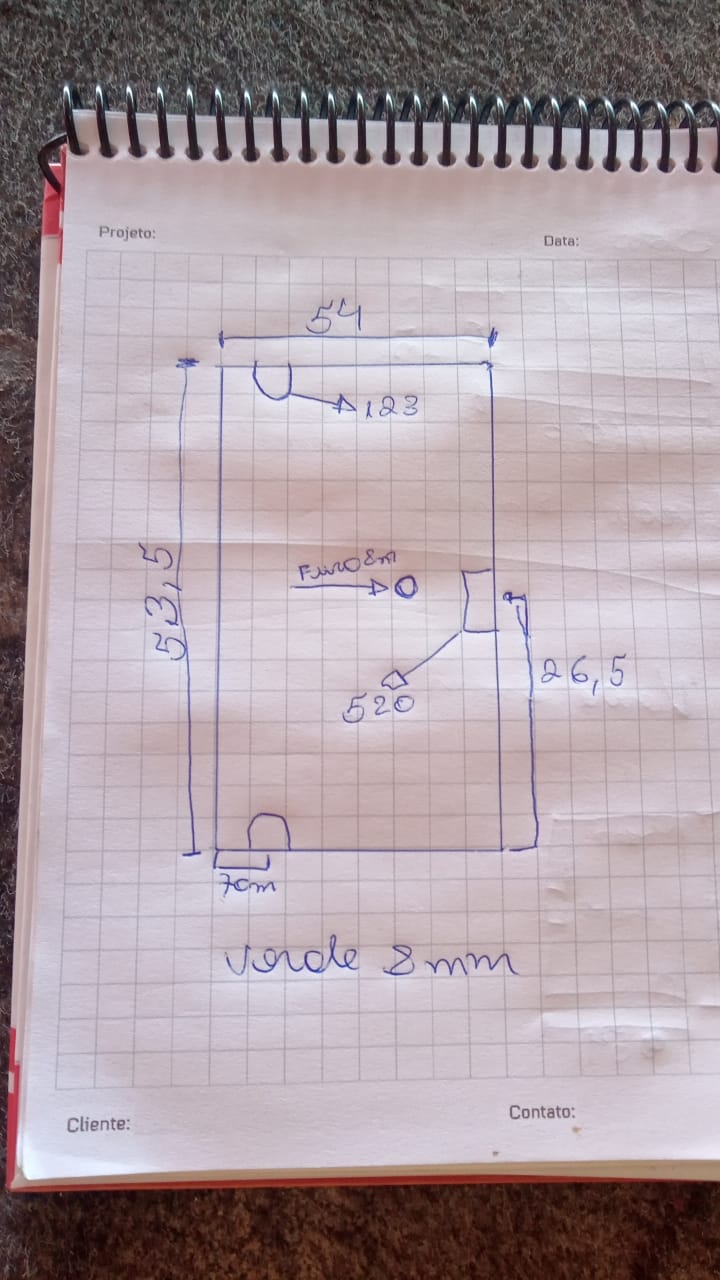 Projeto:
Data:
54
123
53,5
Furo 8m
26,5
520
7cm
verde 8mm
Contato:
Cliente: